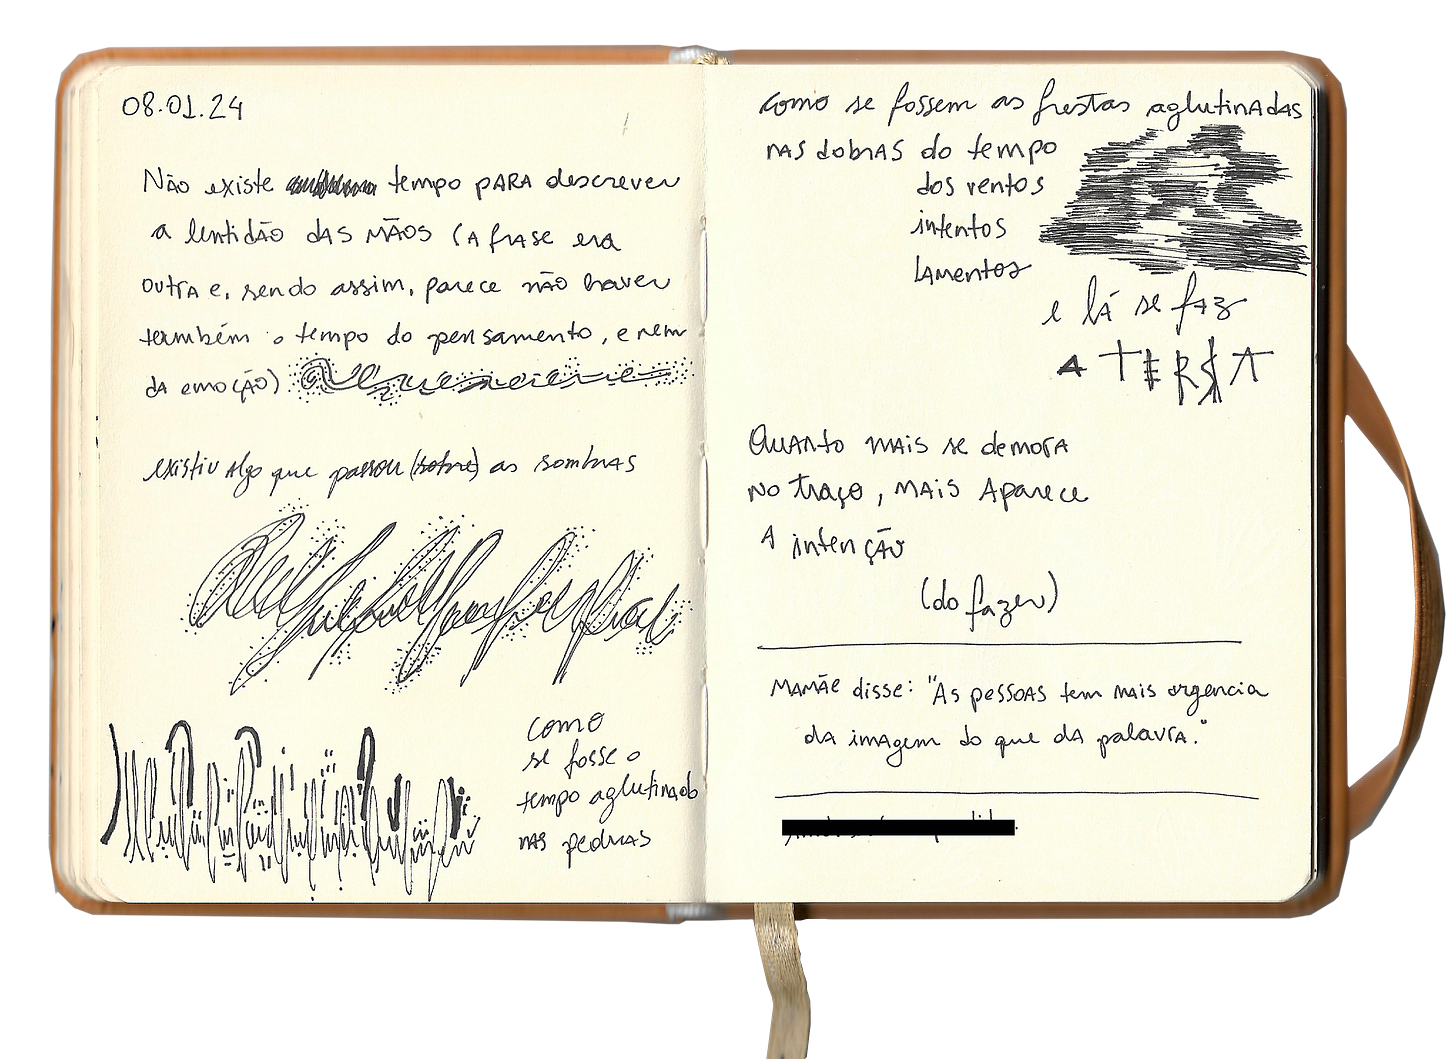 08.01.24
Não existe tempo PARA descrever
a lentidão DAS MÃOS (A frase era
outra e, sendo assim, parece não haver
também o tempo do pensamento, e nem
DA emoção)
existiu Algo que passou (sobre) as sombras
como
se fosse o
tempo aglutinado
NAS pedras
como se fossem as frestas aglutinADAS
NAS dobrAS do tempo
dos ventos
intentos
LAmentos
e lá se faz
QUANTO MAIS se demorA
NO traço, MAIS Aparece
A intenção
(do fazer)
MAMÃe disse: "As pessoas tem mais urgencia
da imagem do que dA palavrA."